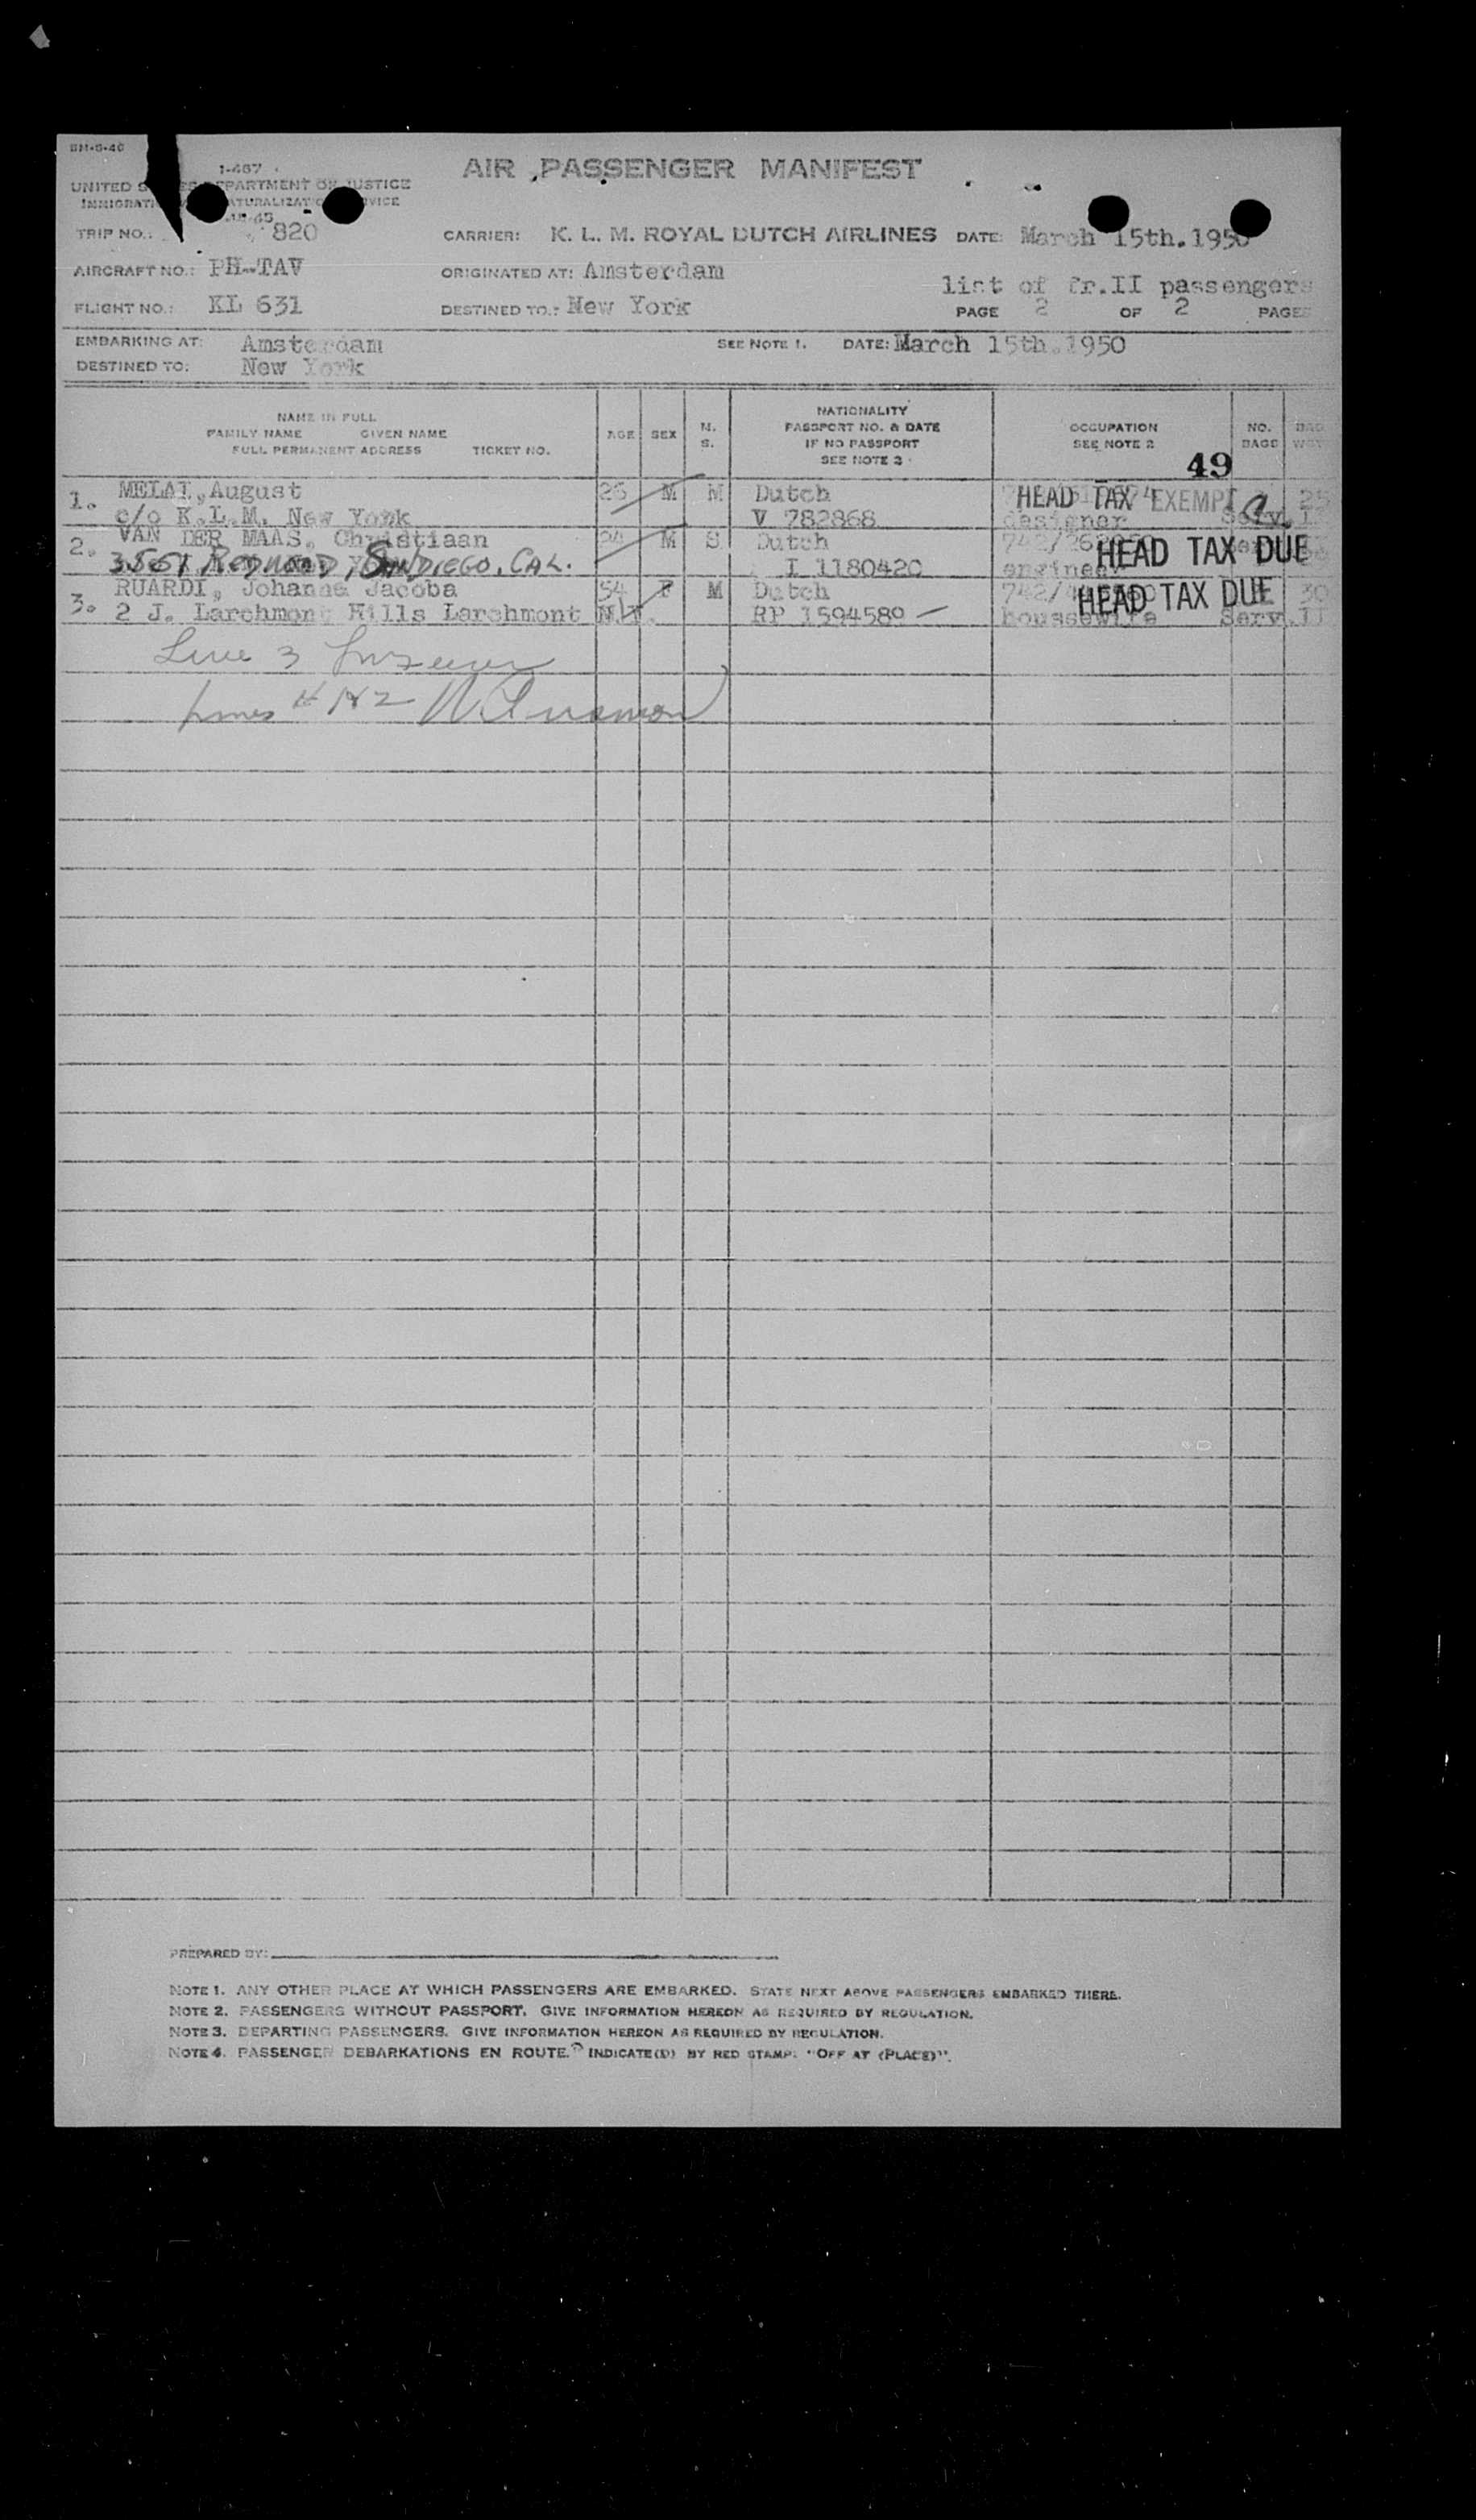 AIR PASSENGER MANIFEST
I-467
UNITED DEPARTMENT OF JUSTICE
TRIP NO.: 820 CARRIER: K. L. M. ROYAL DUTCH AIRLINES DATE: March 15th.1950
AIRCRAFT NO.: PH-TAV ORIGINATED AT: Amsterdam list of fr.II passengers
FLIGHT NO.: KL 631 DESTINED TO.: New York PAGE 2 OF 2 PAGES
EMBARKING AT: Amsterdam SEE NOTE 1. DATE: March 15th.1950
DESTINED TO: New York
NAME IN FULL
FAMILY NAME GIVEN NAME
FULL PERMANENT ADDRESS TICKET NO.
AGE SEX M. S.
NATIONALITY
PASSPORT NO. & DATE
IF NO PASSPORT
SEE NOTE 3
OCCUPATION
SEE NOTE 2
NO. BAGS
49
1. MELAI, August 26 M M Dutch HEAD TAX EXEMPT
c/o K.L.M. New York V 782868 designer Serv.
2. VAN DER MAAS, Christiaan 24 M S Dutch HEAD TAX DUE
3561 REDWOOD, SAN DIEGO, CAL. I 1180420 engineer
3. RUARDI, Johanna Jacoba 54 F M Dutch HEAD TAX DUE
2 J. Larchmont Hills Larchmont N.Y. RP 1594580 housewife Serv.
Line 3
Lines # 1 & 2
PREPARED BY:
NOTE 1. ANY OTHER PLACE AT WHICH PASSENGERS ARE EMBARKED. STATE NEXT ABOVE PASSENGERS EMBARKED THERE.
NOTE 2. PASSENGERS WITHOUT PASSPORT. GIVE INFORMATION HEREON AS REQUIRED BY REGULATION.
NOTE 3. DEPARTING PASSENGERS. GIVE INFORMATION HEREON AS REQUIRED BY REGULATION.
NOTE 4. PASSENGER DEBARKATIONS EN ROUTE. INDICATE(D) BY RED STAMP: "OFF AT (PLACE)".